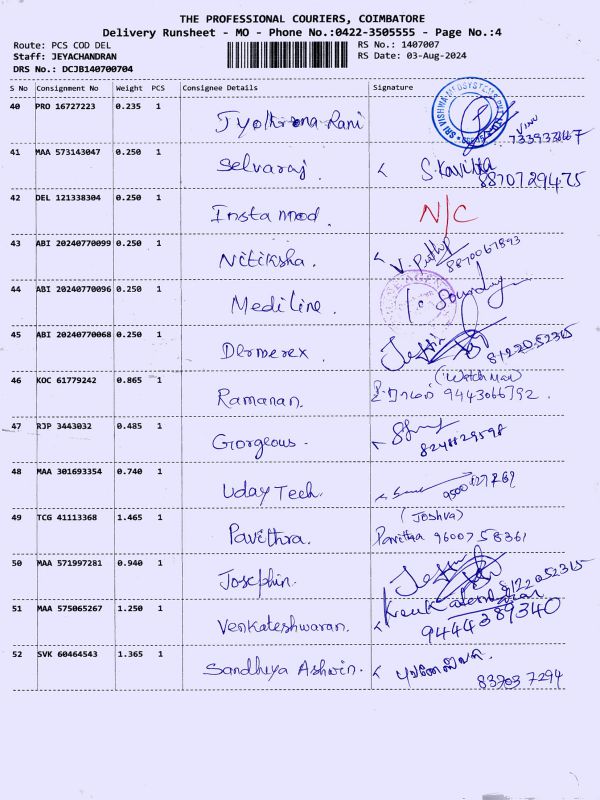 THE PROFESSIONAL COURIERS, COIMBATORE
Delivery Runsheet - MO - Phone No.:0422-3505555 - Page No.:4
Route: PCS COD DEL RS No.: 1407007
Staff: JEYACHANDRAN RS Date: 03-Aug-2024
DRS No.: DCJB140700704
S No Consignment No Weight PCS Consignee Details Signature
40 PRO 16727223 0.235 1 Jyothirona Rani
41 MAA 573143047 0.250 1 Selvaraj. S.Kavitha
8870729475
42 DEL 121338304 0.250 1 Insta mod. N/C
43 ABI 20240770099 0.250 1 Nitiksha. 8870067893
44 ABI 20240770096 0.250 1 Mediline.
45 ABI 20240770068 0.250 1 Dermerex 8122052315
46 KOC 61779242 0.865 1 Ramanan. (Watch Man)
9443066792.
47 RJP 3443032 0.485 1 Gorgeous.
48 MAA 301693354 0.740 1 Uday Tech.
49 TCG 41113368 1.465 1 Pavithra. (Joshva)
Pavithra 9600758361
50 MAA 571997281 0.940 1 Josephin. 8122052315
51 MAA 575065267 1.250 1 Venkateshwaran.
9444389340
52 SVK 60464543 1.365 1 Sandhiya Ashwin.